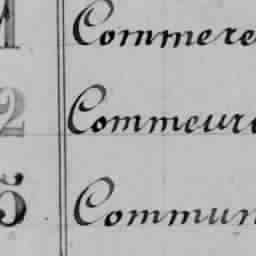 1 Commere
2 Commeur
5 Commun